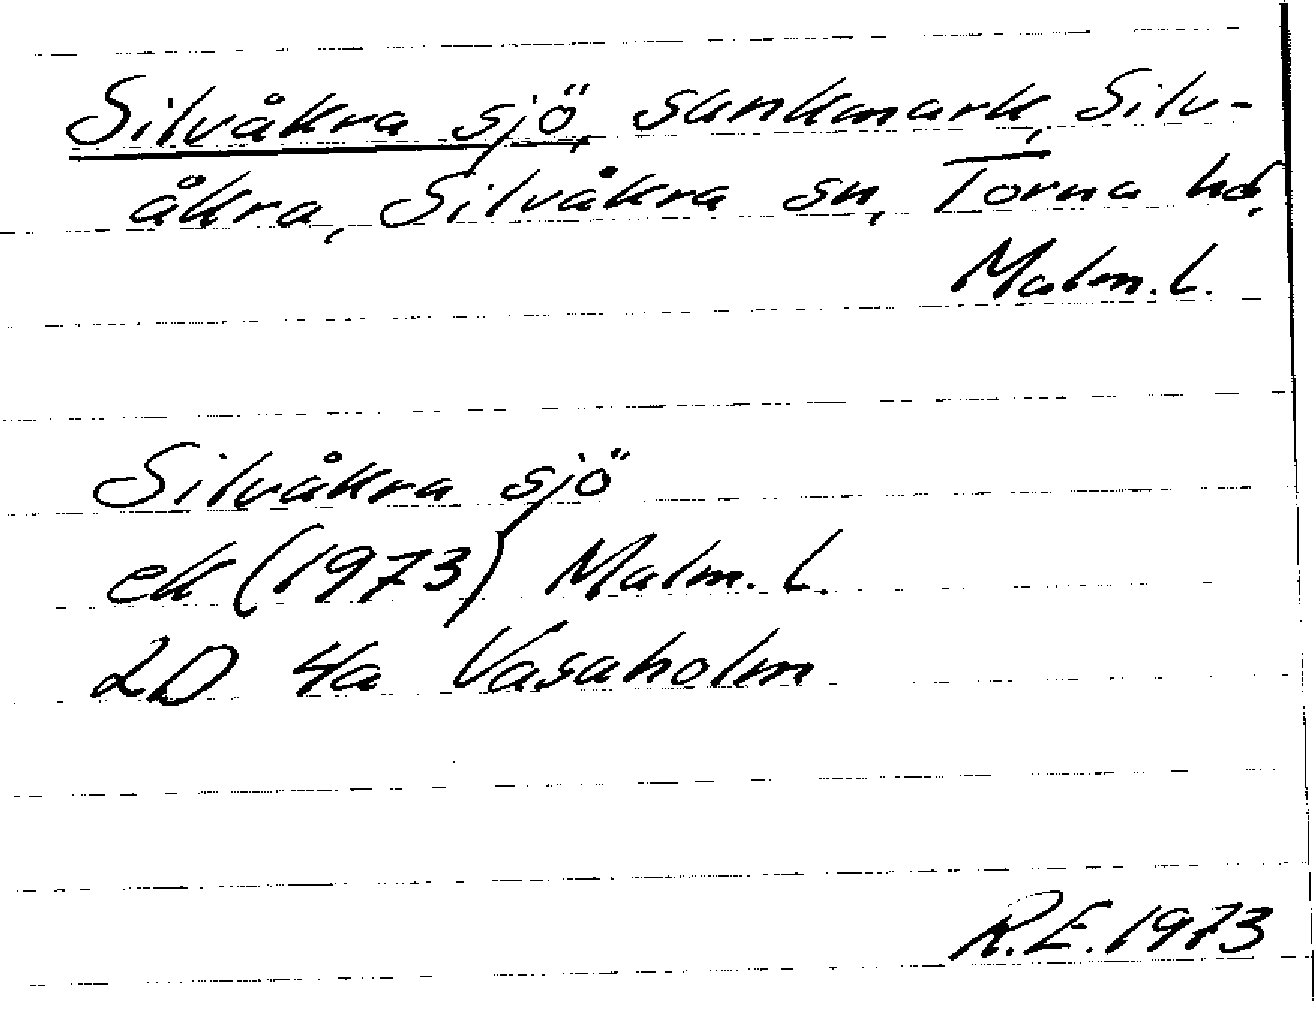 Silvåkra sjö, sankmark, Silv-
åkra, Silvåkra sn, Torna hd,
Malm. l.
Silvåkra sjö
ek (1973) Malm. l.
2D 4a Vasaholm
R.E. 1973